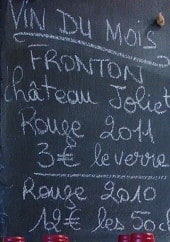 VIN DU MOIS
FRONTON
Château Joliet
Rouge 2011
3€ le verre
Rouge 2010
12€ les 50c